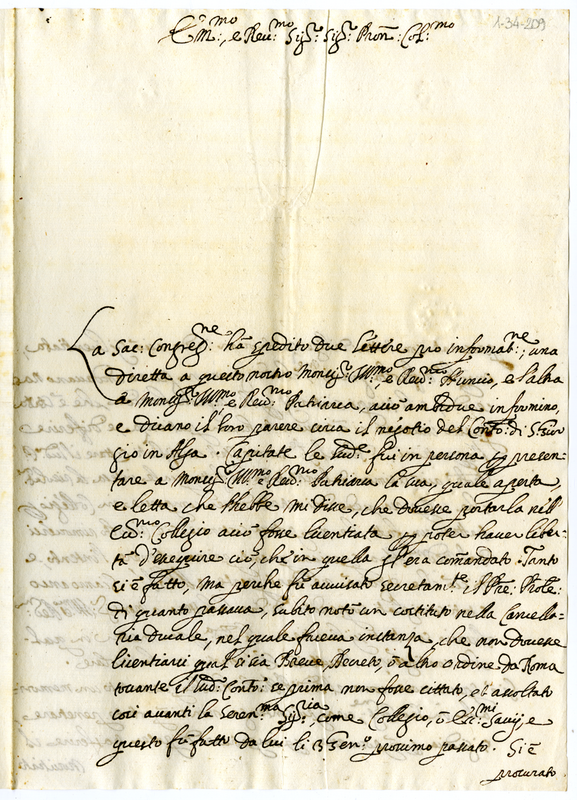 1-34-209
Em:mo, e Reu:mo Sig:r Sig:r Pron: Col:mo
La Sac: Congreg:ne ha spedito due lettere pro informat:ne; una
diretta a questo nostro Monsig:r Ill:mo e Reu:mo Nuncio, e l'altra
a Monsig:r Ill:mo e Reu:mo Patriarca, acciò ambidue informino,
e dicano il loro parere circa il negotio del Conto: di S: Gior
gio in Alga. Capitate le sud:e fui in persona per presen=
tare a Monsig:r Ill:mo e Reu:mo Patriarca la sua, quale aperta
e letta che l'hebbe mi disse, che douesse portarla nell'
Ecc:mo Collegio acciò fosse licentiata per poter hauer liber=
tà d'esequire ciò, che in quella gl'era comandato. Tanto
si è fatto, ma perche fù auuisato secretam:te il Pre:
di quanto passaua, subito notò un costituto nella Cancella=
ria ducale, nel quale faceua instanza, che non douesse
licentiarsi qual si sia Breue, Decreto, ò altro ordine da Roma
toccante il sud:o Conto: se prima non fosse cittato, et ascoltato
così auanti la Seren:ma Sig:ria come Collegio, ò Ecc:mi Sauij, e
questo fù fatto da lui li 3 Gen:o prossimo passato. Si è
procurato